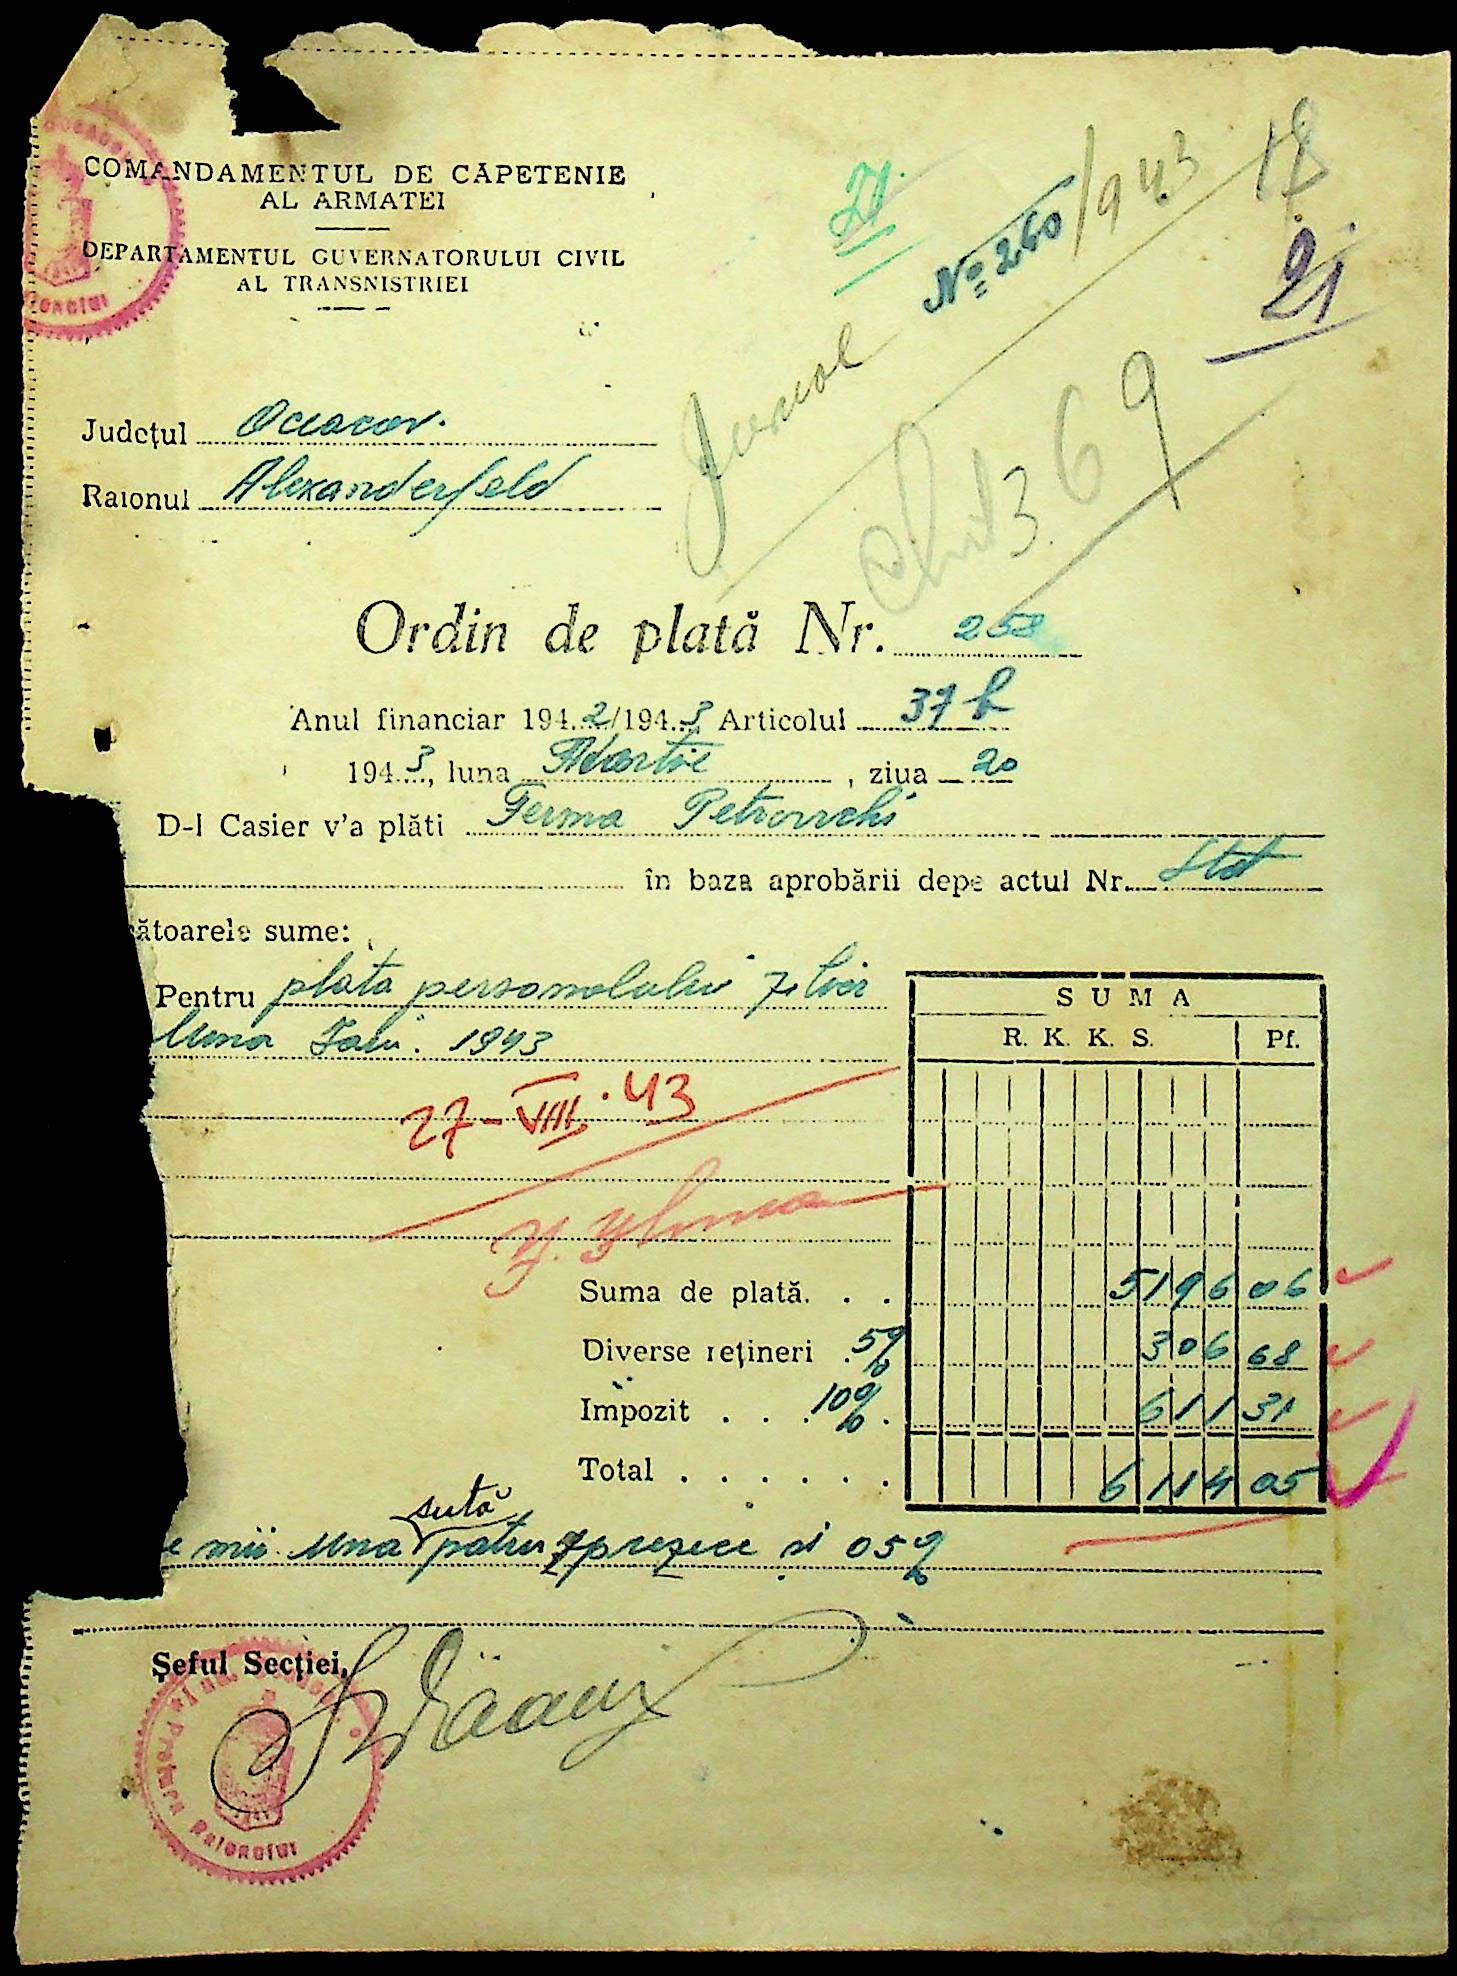 COMANDAMENTUL DE CĂPETENIE
AL ARMATEI
DEPARTAMENTUL GUVERNATORULUI CIVIL
AL TRANSNISTRIEI
21.
Nº 260/943
18
21
Jurnal
369
Județul Oceacov.
Raionul Alexanderfeld
Ordin de plată Nr. 258
Anul financiar 1942/1943 Articolul 37 b
1943, luna Martie, ziua 20
D-l Casier v'a plăti Ferma Petrovschi
în baza aprobării depe actul Nr. Stat
ătoarele sume:
Pentru plata personalului zilier
luna Ian. 1943
27-VIII.43
SUMA
R. K. K. S. Pf.
Suma de plată. . . 5196 06
Diverse rețineri . 5% 306 68
Impozit . . . 10% . 611 31
Total . . . . . . 6114 05
e mii una sută patrusprezece și 05%
Șeful Secției,
Pretura Raionului